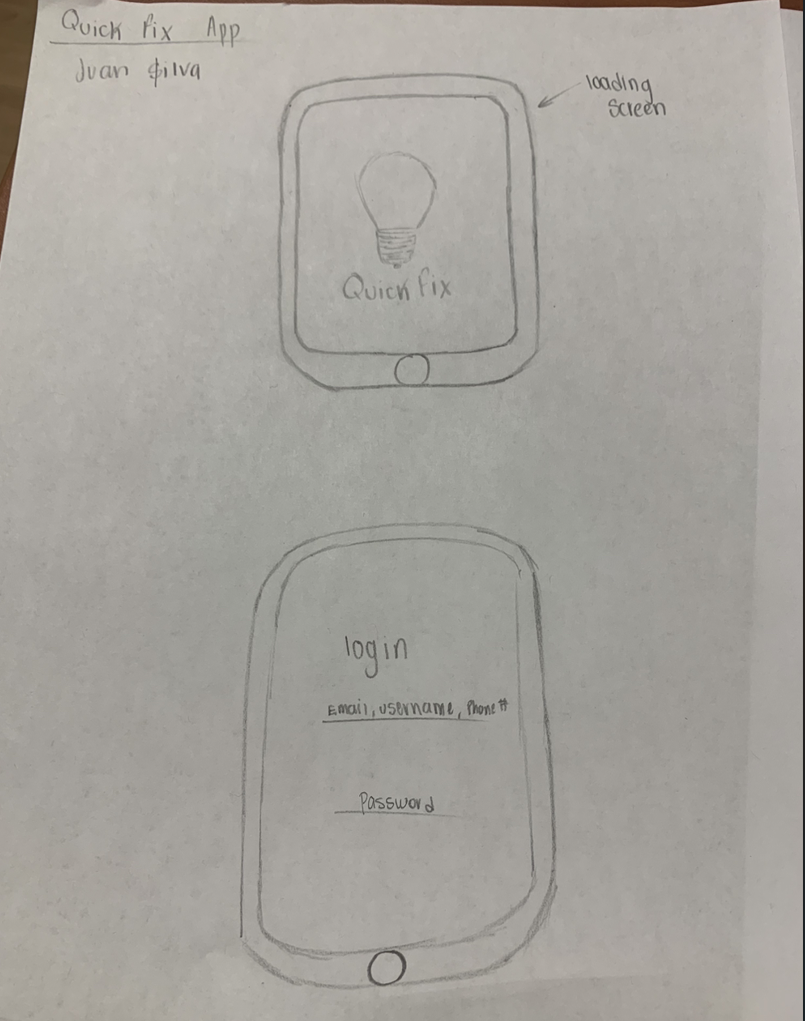 Quick Fix App
Juan Silva
loading
screen
Quick Fix
login
Email, username, Phone #
Password